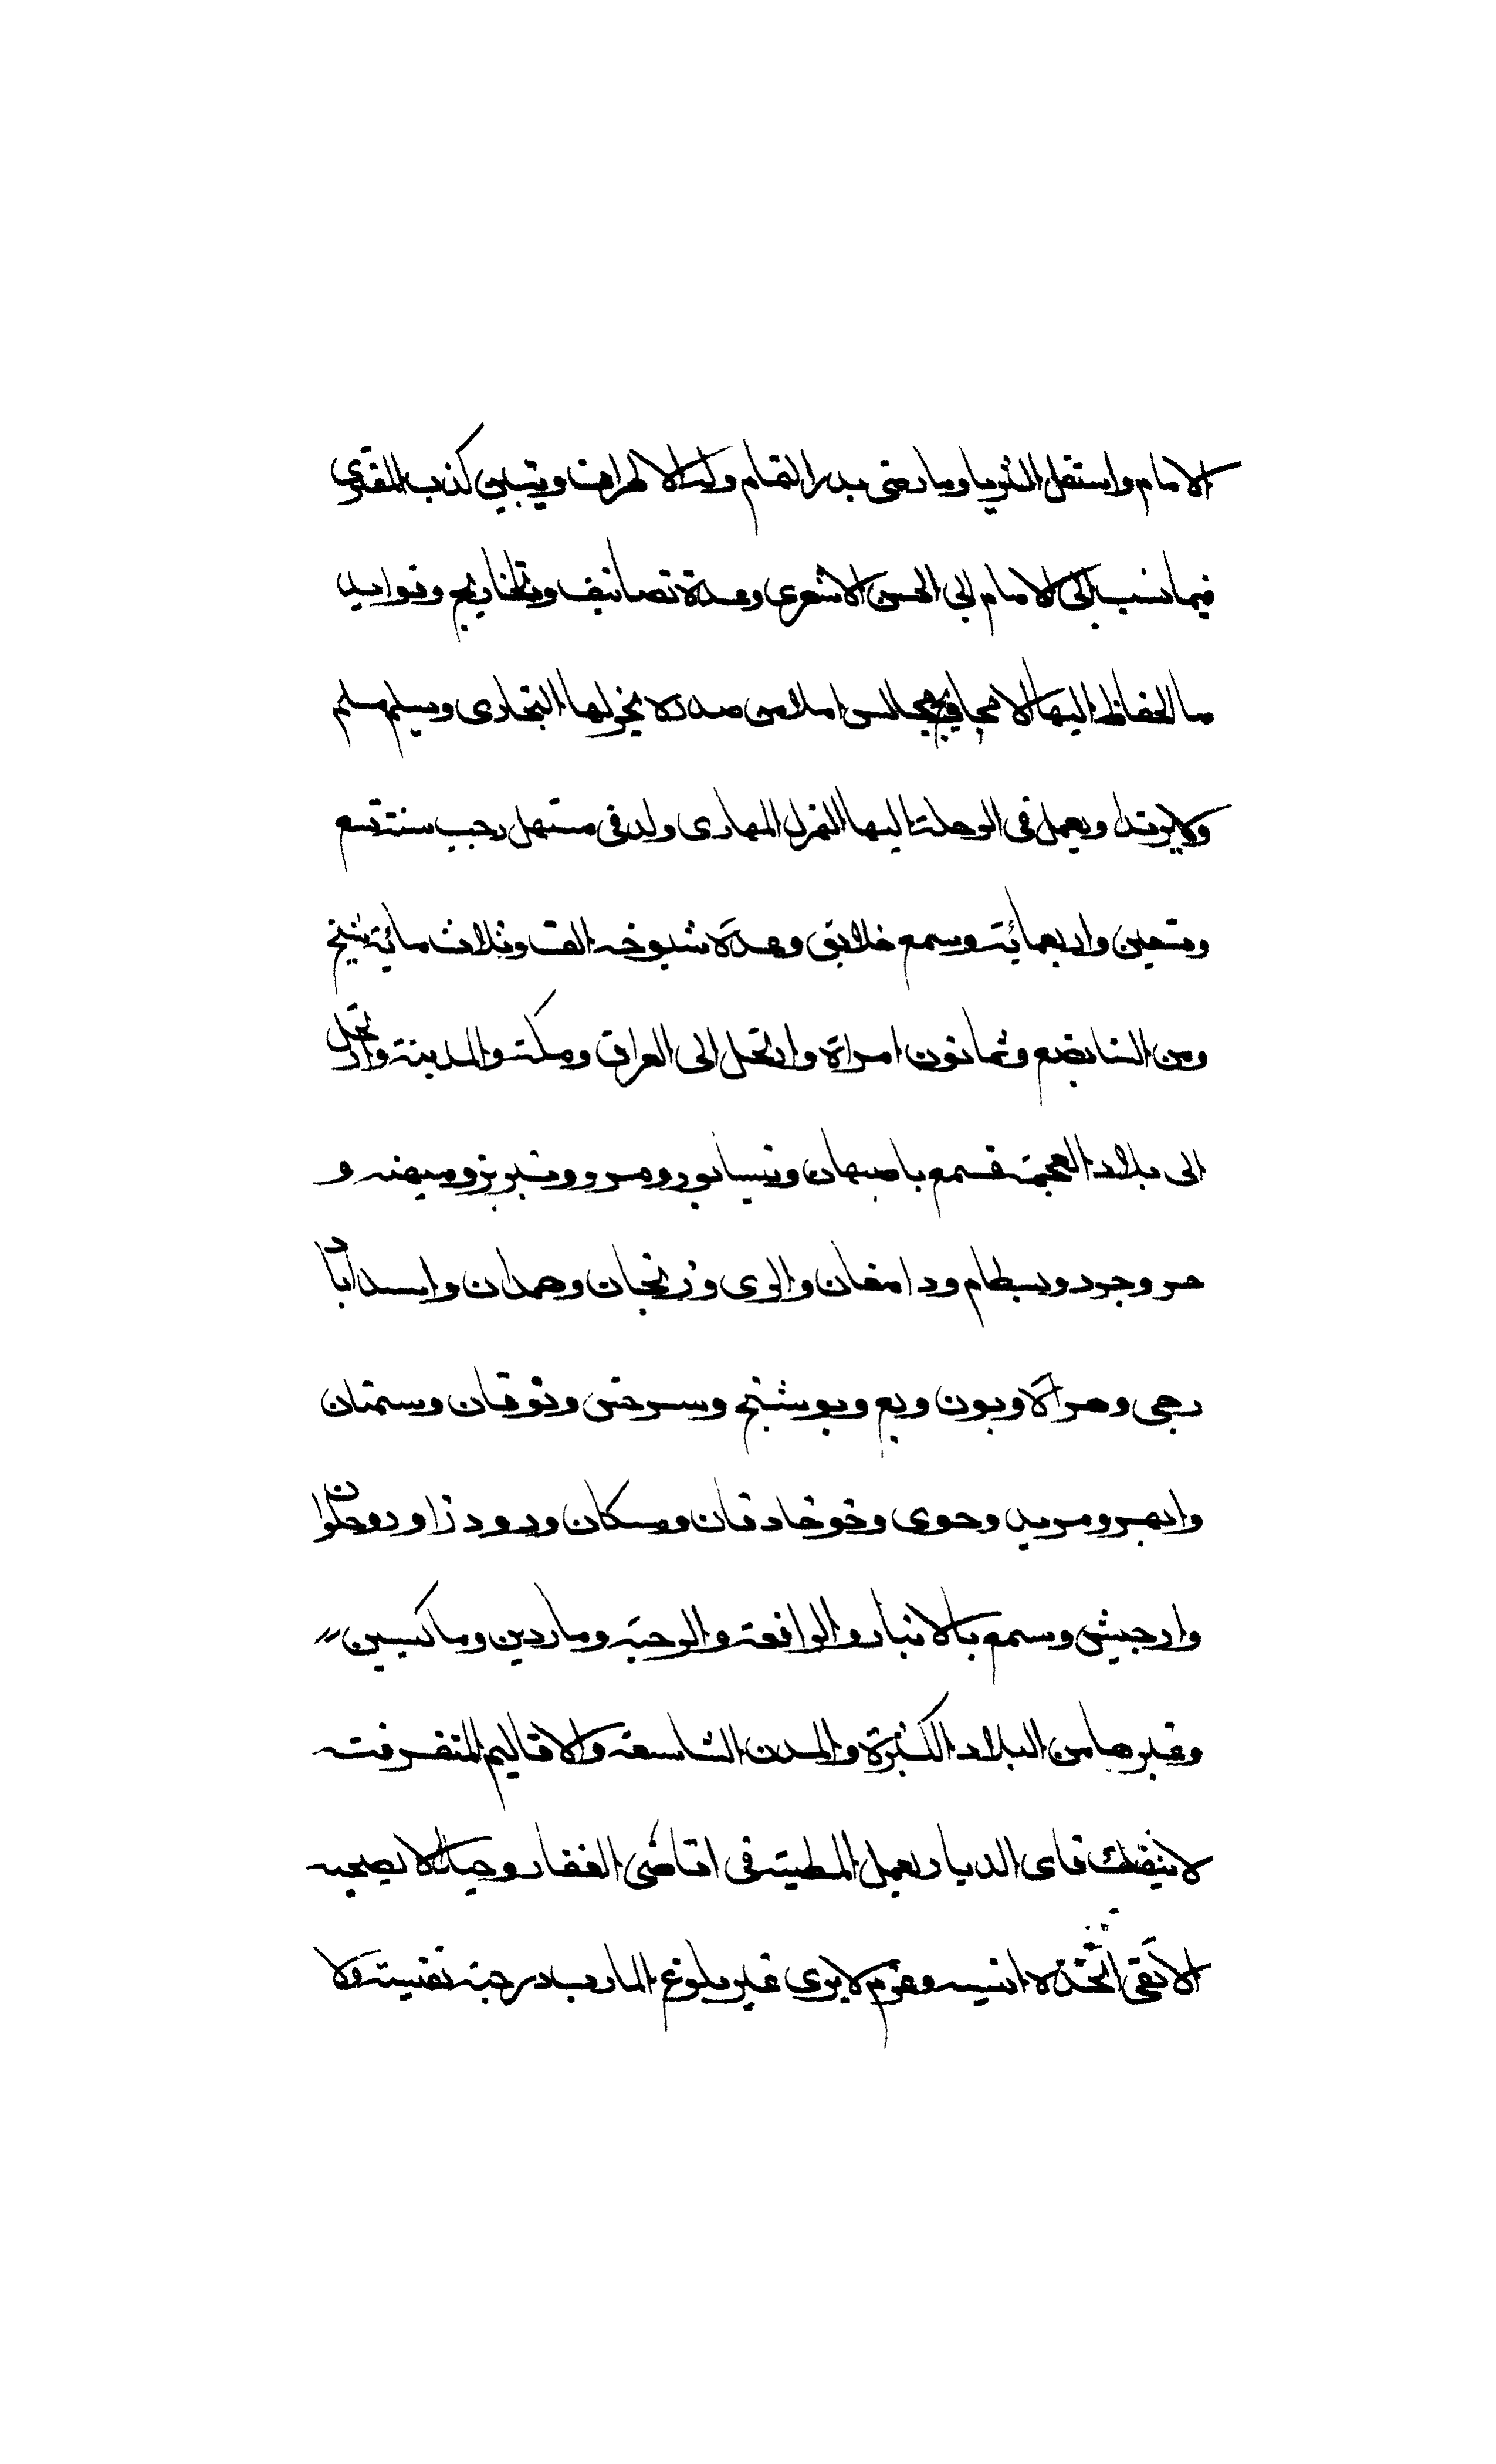 الامام واستقل الثريا وما رضى بدر التمام وله الاطراف وتبيين كذب المفترى
فيما نسب الى الامام ابى الحسن الاشعرى وعدة تصانيف وتخاريج وفوايد
ما الحفاظ اليها الا محاويج ومجالس املا من صدره يخر لها البخارى ويسلم مسلم
ولا يرتد او يعمل فى الرحلة اليها البزل المهارى ولد فى مستهل رجب سنة تسع
وتسعين واربعمائة وسمع خلايق وعدة شيوخه الف وثلاث مائة شيخ
ومن النسا بضع وثمانون امراة وارتحل الى العراق ومكة والمدينة وارتحل
الى بلاد العجم فسمع باصبهان ونيسابور ومرو وتبريز وميهنه و
خروجرد وبسطام ودامغان والرى وزنجان وهمدان واسداباد
وجى وهراة وبون وبغ وبوشنج وسرخس ونوقان وسمنان
وابهر ومرند وخوى وجرباذقان ومشكان وروذراور وحلوان
وارجيش وسمع بالانبار والرافقة والرحبة وماردين وماكسين
وغيرها من البلاد الكثيرة والمدن الشاسعة والاقاليم المتفرقة
لا ينفك نائ الديار يعمل المطية فى اقاصى القفار وحيدا لا يصحبه
الا تقى اتخذه انيسه وعزم لا يرى غير بلوغ المارب درجة نفيسة ولا